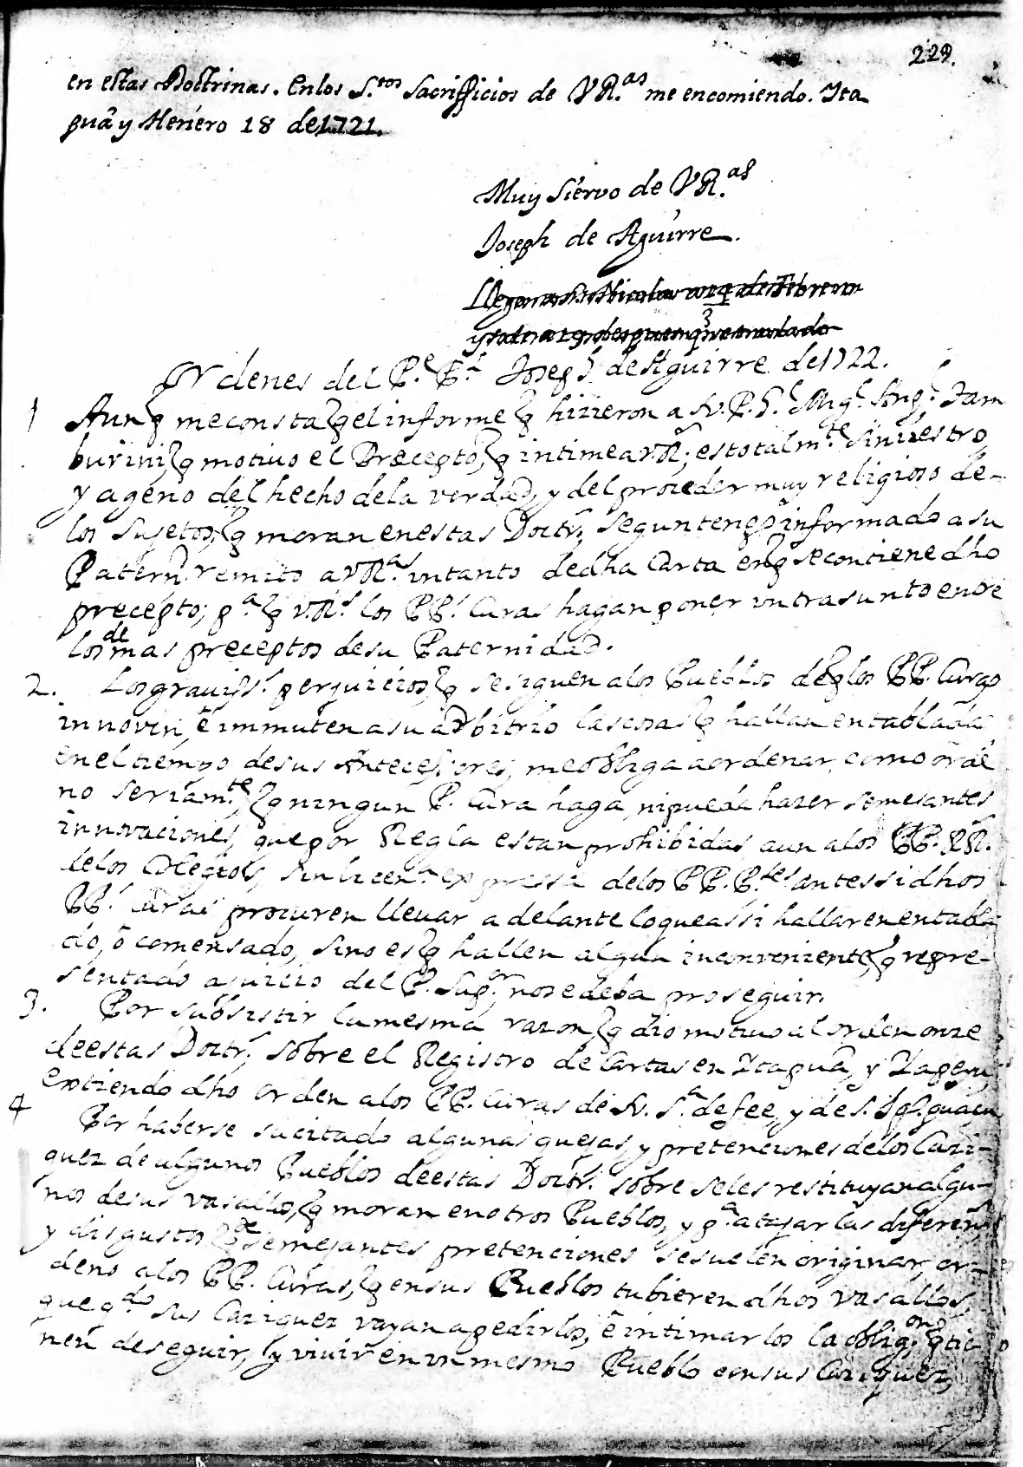 229.
en estas Doctrinas. En los S.tos Sacrifficios de VR.as me encomiendo. Ita
puã y Henero 18 de 1721.
Muy Siervo de VR.as
Joseph de Aguirre.
Llegaron a S. Nicolas
Ordenes del P.e P.l Joseph de Aguirre de 1722.
1 Aunq̃ me consta q̃ el informe q̃ hizieron a N. P. G.l Mig.l Ang.l Tam
burini, q̃ motiuo el Precepto, q̃ intime a vR.s, es totalm.te siniestro,
y ageno del hecho de la verdad, y del proceder muy religioso de-
los Sujetos, q̃ moran en estas Doctr.s segun tengo informado a su
Patern.d remito a vR.as vn tanto de dha Carta en q̃ se contiene dho
precepto; p.a q̃ v.R.s los PP.s Curas hagan poner vn trasunto entre
los demas preceptos de su Paternidad.
2. Los graviss.s perjuicios, q̃ se siguen a los Pueblos de q̃ los PP. Curas
innoven, è immuten a su arbitrio las cosas q̃ hallan entabladas
en el tiempo de sus Antecessores, me obliga a ordenar, como orde
no seriam.te, q̃ ningun P. Cura haga, ni pueda hazer semejantes
innovaciones, que por Regla estan prohibidas aun a los PP. RR.
de los Colegios, sin licen.a expressa de los PP. P.les antes si dhos
PP.s Curas procuren llevar adelante lo que assi hallaren entabla
do, ò comensado, sino es q̃ hallen algun inconveniente, q̃ repre-
sentado a juicio del P. Sup.r, no se deba proseguir.
3. Por subsistir la mesma razon, q̃ dio motiuo al orden onze
de estas Doctr.s sobre el Registro de Cartas en Itapuã, y Yapeyu,
extiendo dho orden a los PP. Curas de N. S.a de fee, y de S. Ig.o guaçu
4 Por haberse sucitado algunas quejas, y pretenciones de los Cazi-
quez de algunos Pueblos de estas Doctr.s sobre se les restituyan algu-
nos de sus vasallos, q̃ moran en otros Pueblos, y p.a atajar las diferen
y disgustos q̃ de semejantes pretenciones se suelen originar, or-
deno a los PP. Curas, q̃ en sus Pueblos tubieren dhos vasallos,
que q.do sus Caziquez vayan a pedirlos, è intimarlos la oblig.on q̃ tie
nen de seguir, y vivir en vn mesmo Pueblo con sus Caziquez,